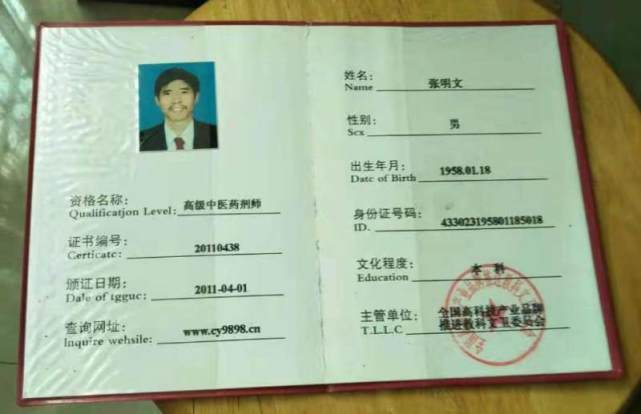 资格名称:
Qualification Level: 高级中医药剂师
证书编号:
Certicatc: 20110438
颁证日期:
Dale of tgguc: 2011-04-01
查询网址:
lnquire wehsile: www.cy9898.cn
姓名:
Name 张明文
性别:
Scx 男
出生年月:
Datc of Birth 1958.01.18
身份证号码:
ID. 433023195801185018
文化程度:
Education 本科
主管单位: 全国高科技产业品牌
T.L.L.C 推进教科文卫委员会